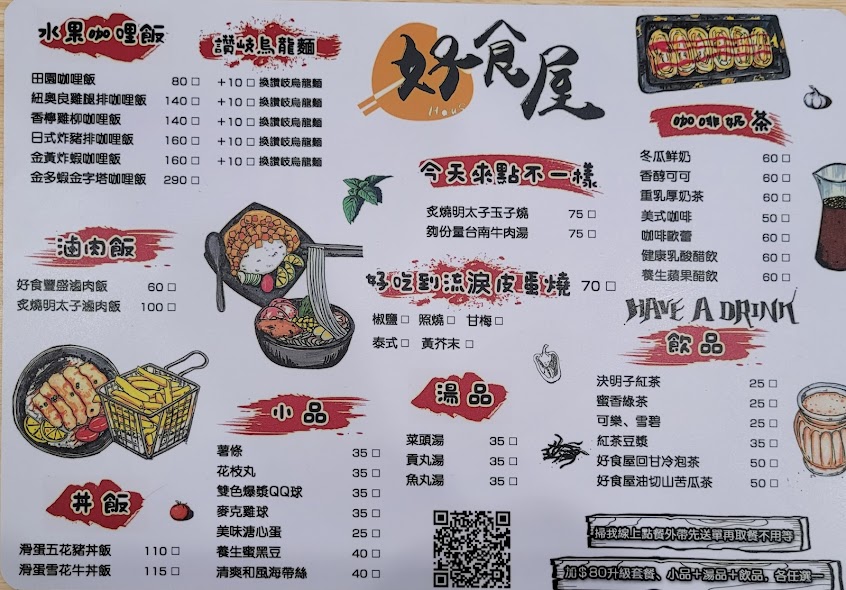 水果咖哩飯
田園咖哩飯 80 □
紐奧良雞腿排咖哩飯 140 □
香檸雞柳咖哩飯 140 □
日式炸豬排咖哩飯 160 □
金黃炸蝦咖哩飯 160 □
金多蝦金字塔咖哩飯 290 □
讚岐烏龍麵
+10 □ 換讚岐烏龍麵
+10 □ 換讚岐烏龍麵
+10 □ 換讚岐烏龍麵
+10 □ 換讚岐烏龍麵
+10 □ 換讚岐烏龍麵
好食屋
滷肉飯
好食豐盛滷肉飯 60 □
炙燒明太子滷肉飯 100 □
今天來點不一樣
炙燒明太子玉子燒 75 □
夠份量台南牛肉湯 75 □
好吃到流淚皮蛋燒 70 □
椒鹽 □ 照燒 □ 甘梅 □
泰式 □ 黃芥末 □
咖啡奶茶
冬瓜鮮奶 60 □
香醇可可 60 □
重乳厚奶茶 60 □
美式咖啡 50 □
咖啡歐蕾 60 □
健康乳酸醋飲 60 □
養生蘋果醋飲 60 □
HAVE A DRINK
飲品
決明子紅茶 25 □
蜜香綠茶 25 □
可樂、雪碧 25 □
紅茶豆漿 35 □
好食屋回甘冷泡茶 50 □
好食屋油切山苦瓜茶 50 □
丼飯
滑蛋五花豬丼飯 110 □
滑蛋雪花牛丼飯 115 □
小品
薯條 35 □
花枝丸 35 □
雙色爆漿QQ球 35 □
麥克雞球 35 □
美味溏心蛋 25 □
養生蜜黑豆 40 □
清爽和風海帶絲 40 □
湯品
菜頭湯 35 □
貢丸湯 35 □
魚丸湯 35 □
掃我線上點餐外帶先送單再取餐不用等
加$80升級套餐、小品+湯品+飲品，各任選一